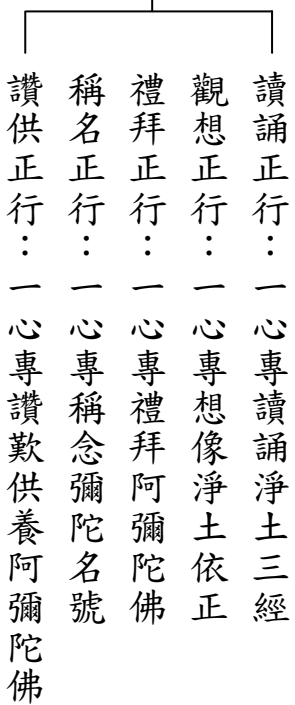 讀誦正行：一心專讀誦淨土三經
觀想正行：一心專想像淨土依正
禮拜正行：一心專禮拜阿彌陀佛
稱名正行：一心專稱念彌陀名號
讚供正行：一心專讚歎供養阿彌陀佛